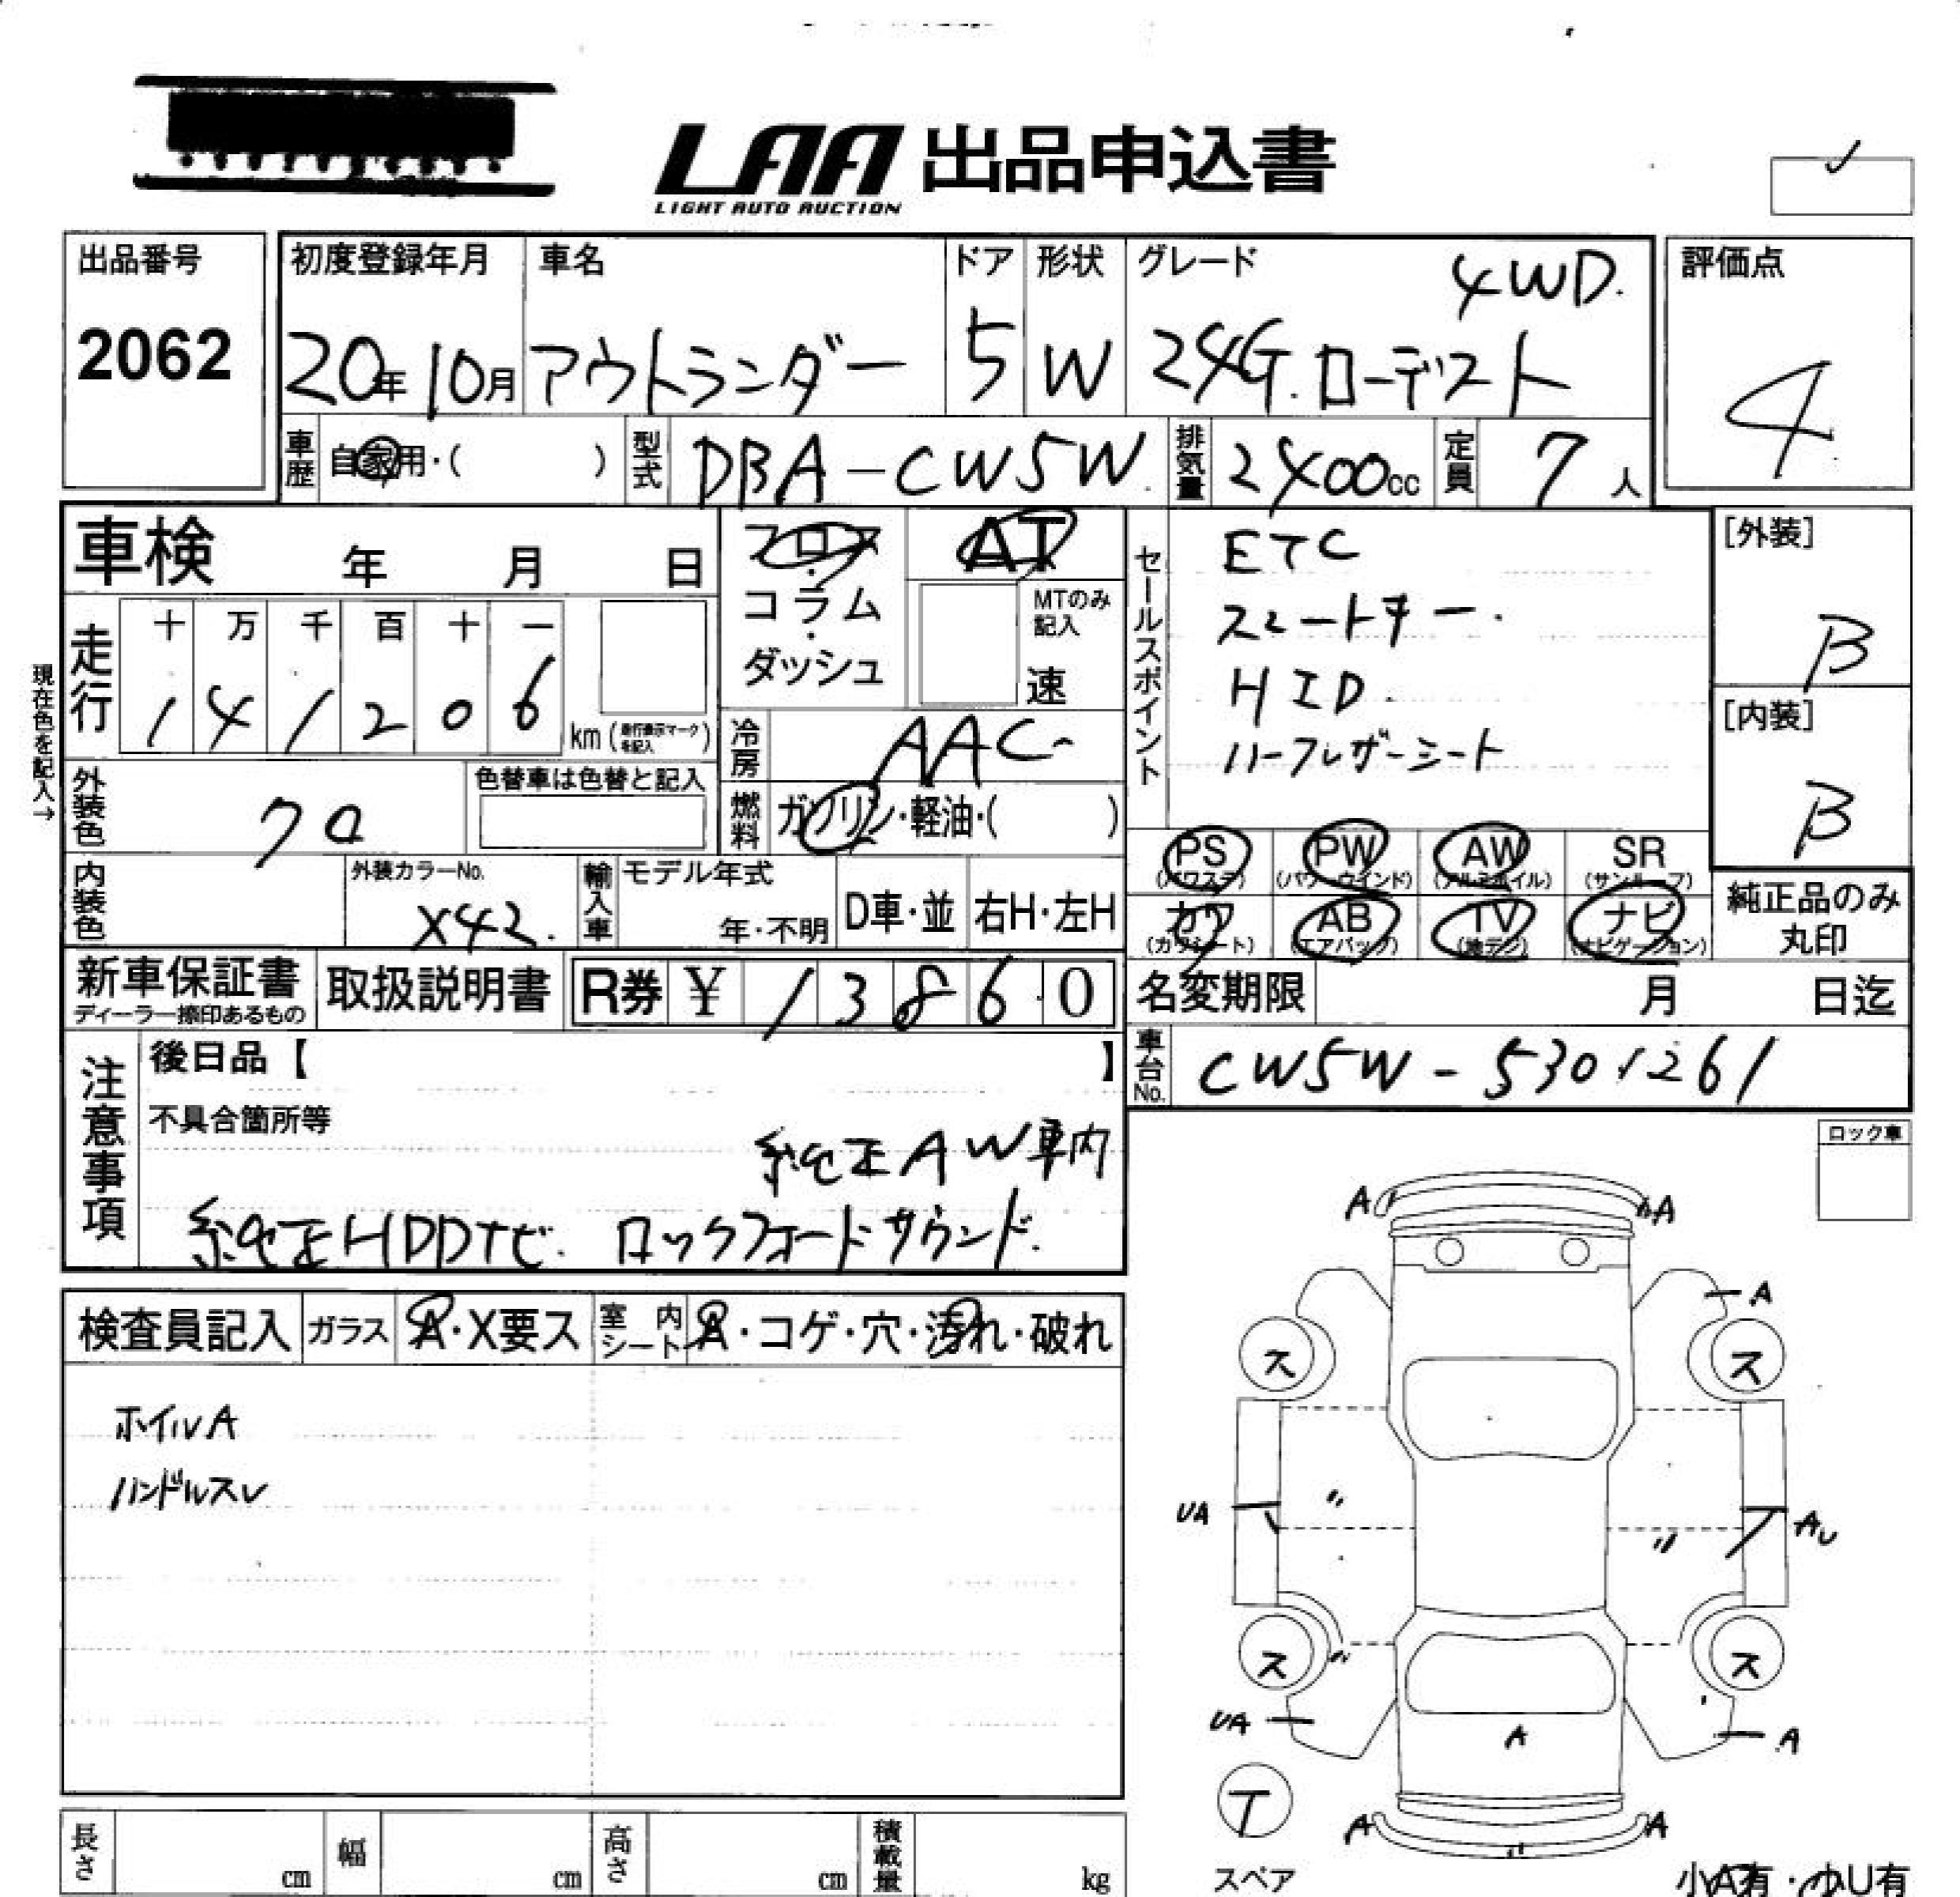 LAA 出品申込書
LIGHT AUTO AUCTION
出品番号
2062
初度登録年月
20年10月
車名
アウトランダー
ドア
5
形状
W
グレード
4WD.
24G.ローデスト
評価点
4
車歴
自家用・( )
型式
DBA-CW5W
排気量
2400cc
定員
7人
車検 年 月 日
フロア・コラム・ダッシュ
AT
MTのみ記入
速
セールスポイント
ETC
スマートキー.
HID
ハーフレザーシート
[外装]
B
[内装]
B
現在色を記入→
走行
十 万 千 百 十 一
1 4 1 2 0 6
km(走行表示マークを記入)
冷房
AAC
燃料
ガソリン・軽油・( )
外装色
クロ
色替車は色替と記入
内装色
外装カラーNo.
X42.
輸入車
モデル年式
年・不明
D車・並
右H・左H
PS
(パワステ)
PW
(パワーウインド)
AW
(アルミホイル)
SR
(サンルーフ)
カワ
(カワシート)
AB
(エアバッグ)
TV
(地デジ)
ナビ
(ナビゲーション)
純正品のみ
丸印
新車保証書
ディーラー捺印あるもの
取扱説明書
R券 ¥ 13860
名変期限 月 日迄
車台No.
CW5W-5301261
注意事項
後日品【 】
不具合箇所等
純正AW車内
純正HDDナビ. ロックフォードサウンド.
ロック車
検査員記入
ガラス
A・X要ス
室内シート
A・コゲ・穴・汚れ・破れ
ホイルA
ハンドルスレ
A A
A
ス ス
UA 〃 〃 AU
ス 〃 ス
UA A A
T
A 〃 A
スペア
小A有・小U有
長さ cm
幅 cm
高さ cm
積載量 kg